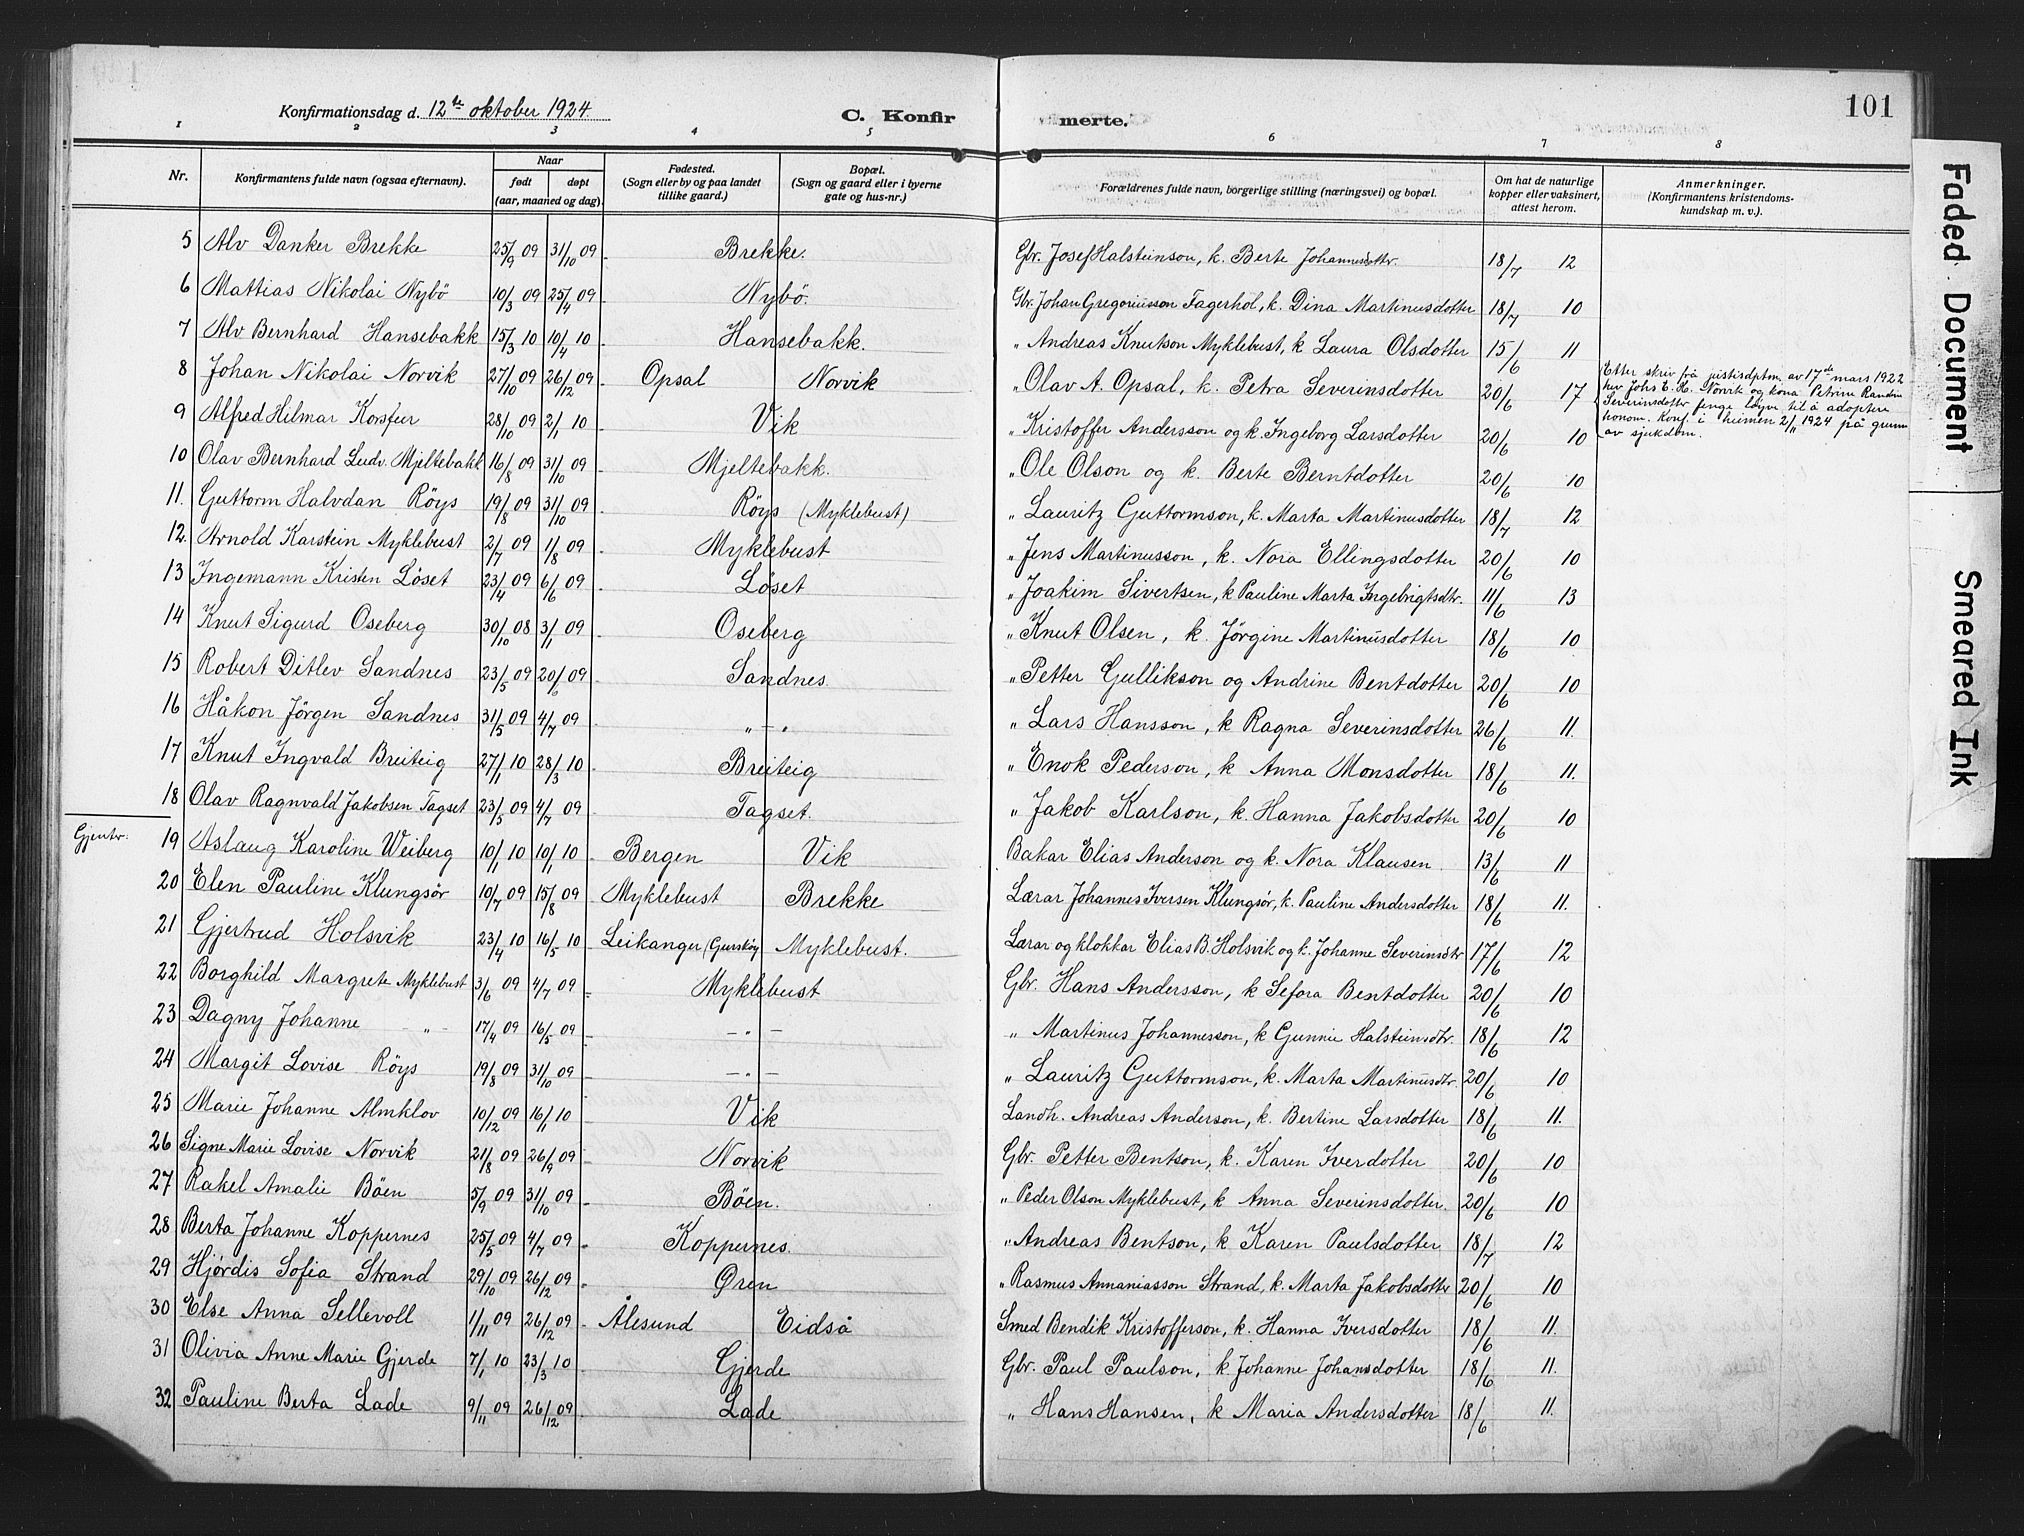 Konfirmationsdag d. 12te oktober 1924. C. Konfirmerte. 101
1 2 3 4 5 6 7 8
Nr. Konfirmantens fulde navn (ogsaa efternavn). Naar født døpt (aar, maaned og dag). Fødested. (Sogn eller by og paa landet tillike gaard.) Bopæl. (Sogn og gaard eller i byerne gate og hus-nr.) Forældrenes fulde navn, borgerlige stilling (næringsvei) og bopæl. Om hat de naturlige kopper eller vaksinert, attest herom. Anmerkninger. (Konfirmantens kristendoms-kundskap m. v.).
5 Alv Danker Brekke 25/9 09 31/10 09 Brekke. Gbr. Josef Halsteinson, k. Berte Johannesdottr. 18/7 12
6 Mattias Nikolai Nybö 10/3 09 25/4 09 Nybö. Gbr. Johan Gregoriusson Fagerhol, k. Dina Martinusdotter 18/7 10
7 Alv Bernhard Hansebakk 15/3 10 10/4 10 Hansebakk. " Andreas Knutson Myklebust, k Laura Olsdotter 15/6 11
8 Johan Nikolai Norvik 27/10 09 26/12 09 Opsal Norvik " Olav A. Opsal, k. Petra Severinsdotter 20/6 17
Etter skriv frå justisdptm av 17de mars 1922
hev Johs E. H. Norvik og kona Petrine Randine
Severinsdotter fenge löyve til å adoptere
honom. Konf. i heimen 2/11 1924 på grunn
av sjukdom.
9 Alfred Hilmar Korsfur 28/10 09 2/1 10 Vik " Kristoffer Andersson og k. Ingeborg Larsdotter 20/6 10
10 Olav Bernhard Ludv. Mjeltebakk 16/8 09 31/10 09 Mjeltebakk. " Ole Olson og k. Berte Berntdotter 20/6 10
11. Guttorm Halvdan Röys 19/8 09 31/10 09 Röys (Myklebust) " Lauritz Guttormson, k. Marta Martinusdotter 18/7 12
12. Arnold Karstein Myklebust 2/7 09 1/8 09 Myklebust " Jens Martinusson, k. Nora Ellingsdotter 20/6 10
13 Ingemann Kristen Löset 23/4 09 6/6 09 Löset " Joakim Sivertsen, k Pauline Marta Ingebrigtsdtr. 11/6 13
14 Knut Sigurd Oseberg 30/10 08 3/1 09 Oseberg " Knut Olsen, k. Jörgine Martinusdotter 18/6 10
15 Robert Ditlev Sandnes 23/5 09 20/6 09 Sandnes. " Petter Gullikson og Andrine Bentdotter 20/6 10
16 Håkon Jörgen Sandnes 31/5 09 4/7 09 " - " " Lars Hansson, k Ragna Severinsdotter 26/6 11.
17 Knut Ingvald Breiteig 27/1 10 28/3 10 Breiteig " Enok Pederson, k Anna Monsdotter 18/6 11.
18 Olav Ragnvald Jakobsen Tagset 23/5 09 4/7 09 Tagset. " Jakob Karlson, k. Hanna Jakobsdotter 20/6 10
Gjentur. 19 Aslaug Karoline Weiberg 10/1 10 10/1 10 Bergen Vik Bakar Elias Anderson og k. Nora Klausen. 13/6 11
20 Elen Pauline Klungsör 10/7 09 15/8 09 Myklebust Brekke Lærar Johannes Iversen Klungsör, k. Pauline Andersdotter 18/6 11.
21 Gjertrud Holsvik 23/4 10 16/5 10 Leikanger (Gurskøy Myklebust. Lærar og klokkar Elias B. Holsvik og k. Johanne Severinsdtr 17/6 12
22 Borghild Margrete Myklebust 3/6 09 4/7 09 Myklebust Gbr. Hans Andersson, k Sefora Bentdotter 20/6 10
23 Dagny Johanne - " - 17/4 09 16/5 09 - " - " Martinus Johannesson, k Gunnie Halsteinsdtr. 18/6 12
24 Margit Lovise Röys 19/8 09 31/10 09 - " - " Lauritz Guttormson, k. Marta Martinusdtr. 20/6 10
25 Marie Johanne Almklov 10/12 09 16/1 10 Vik Landh. Andreas Anderson, k. Bertine Larsdotter 18/6 11.
26 Signe Marie Lovise Norvik 21/8 09 26/9 09 Norvik Gbr. Petter Bentson, k. Karen Iverdotter 20/6 10
27 Rakel Amalie Böen 5/9 09 31/10 09 Böen. " Peder Olson Myklebust, k Anna Severinsdotter. 20/6 10
28 Berta Johanne Koppernes 25/5 09 4/7 09 Koppernes. " Andreas Bentson, k Karen Paulsdotter 18/7 12
29 Hjördis Sofia Strand 29/10 09 26/12 09 Øren " Rasmus Annaniasson Strand, k. Marta Jakobsdotter 20/6 10
30 Else Anna Sellevoll 1/11 09 26/12 09 Ålesund Eidså Smed Bendik Kristofferson, k. Hanna Iversdotter 18/6 11.
31 Olivia Anne Marie Gjerde 7/1 10 23/3 10 Gjerde Gbr. Paul Paulson, k Johanne Johansdotter 18/6 11.
32 Pauline Berta Lade 9/11 09 26/12 09 Lade " Hans Hansen, k Maria Andersdotter 18/6 11.
Faded Document
Smeared Ink